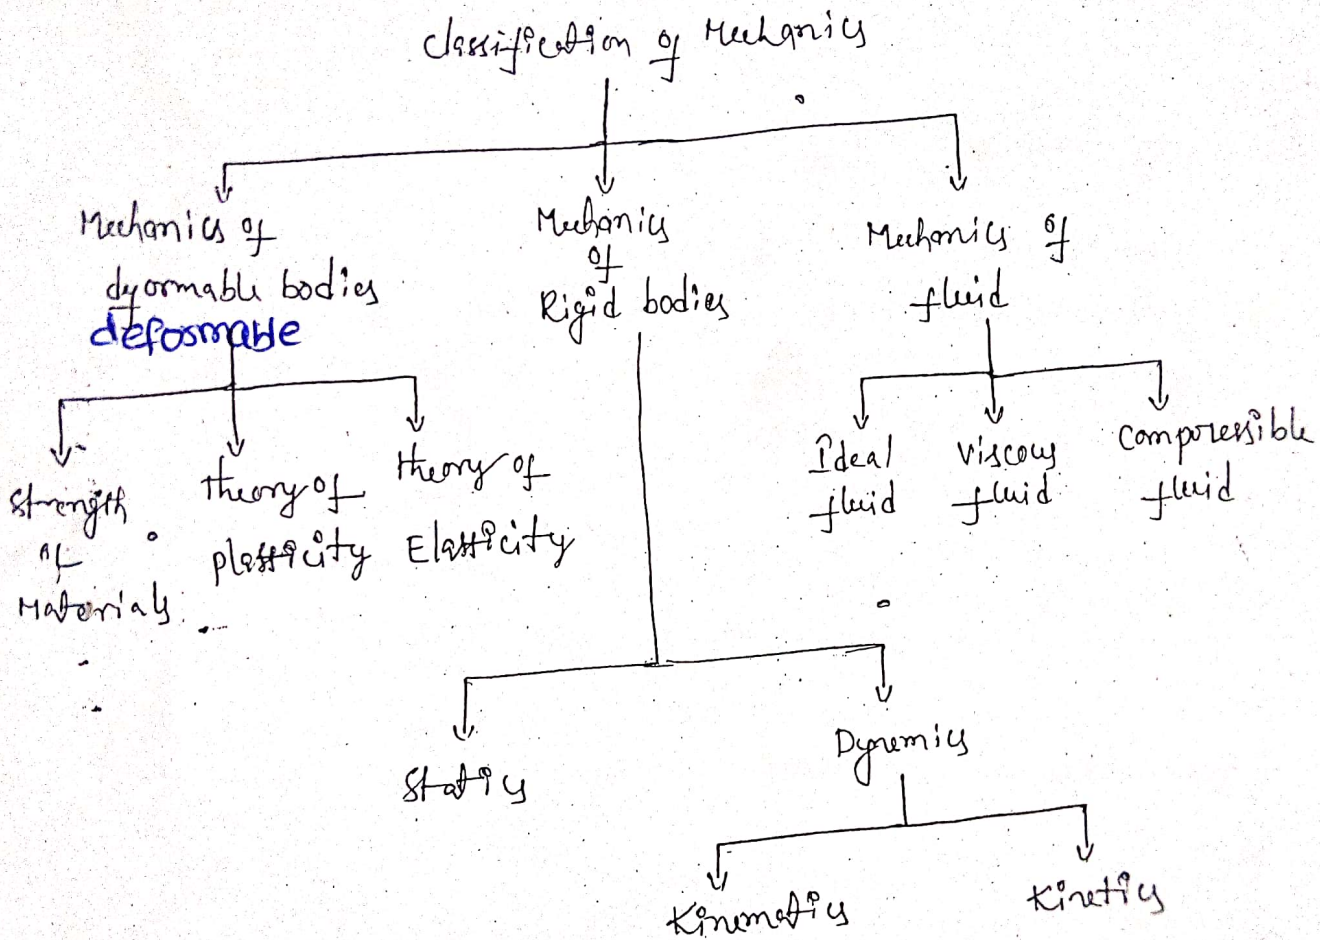 Classification of Mechanics
Mechanics of
deformable bodies
deformable
Mechanics
of
Rigid bodies
Mechanics of
fluid
Strength
of
Materials
theory of
plasticity
theory of
Elasticity
Ideal
fluid
viscous
fluid
compressible
fluid
Statics
Dynamics
Kinematics
Kinetics